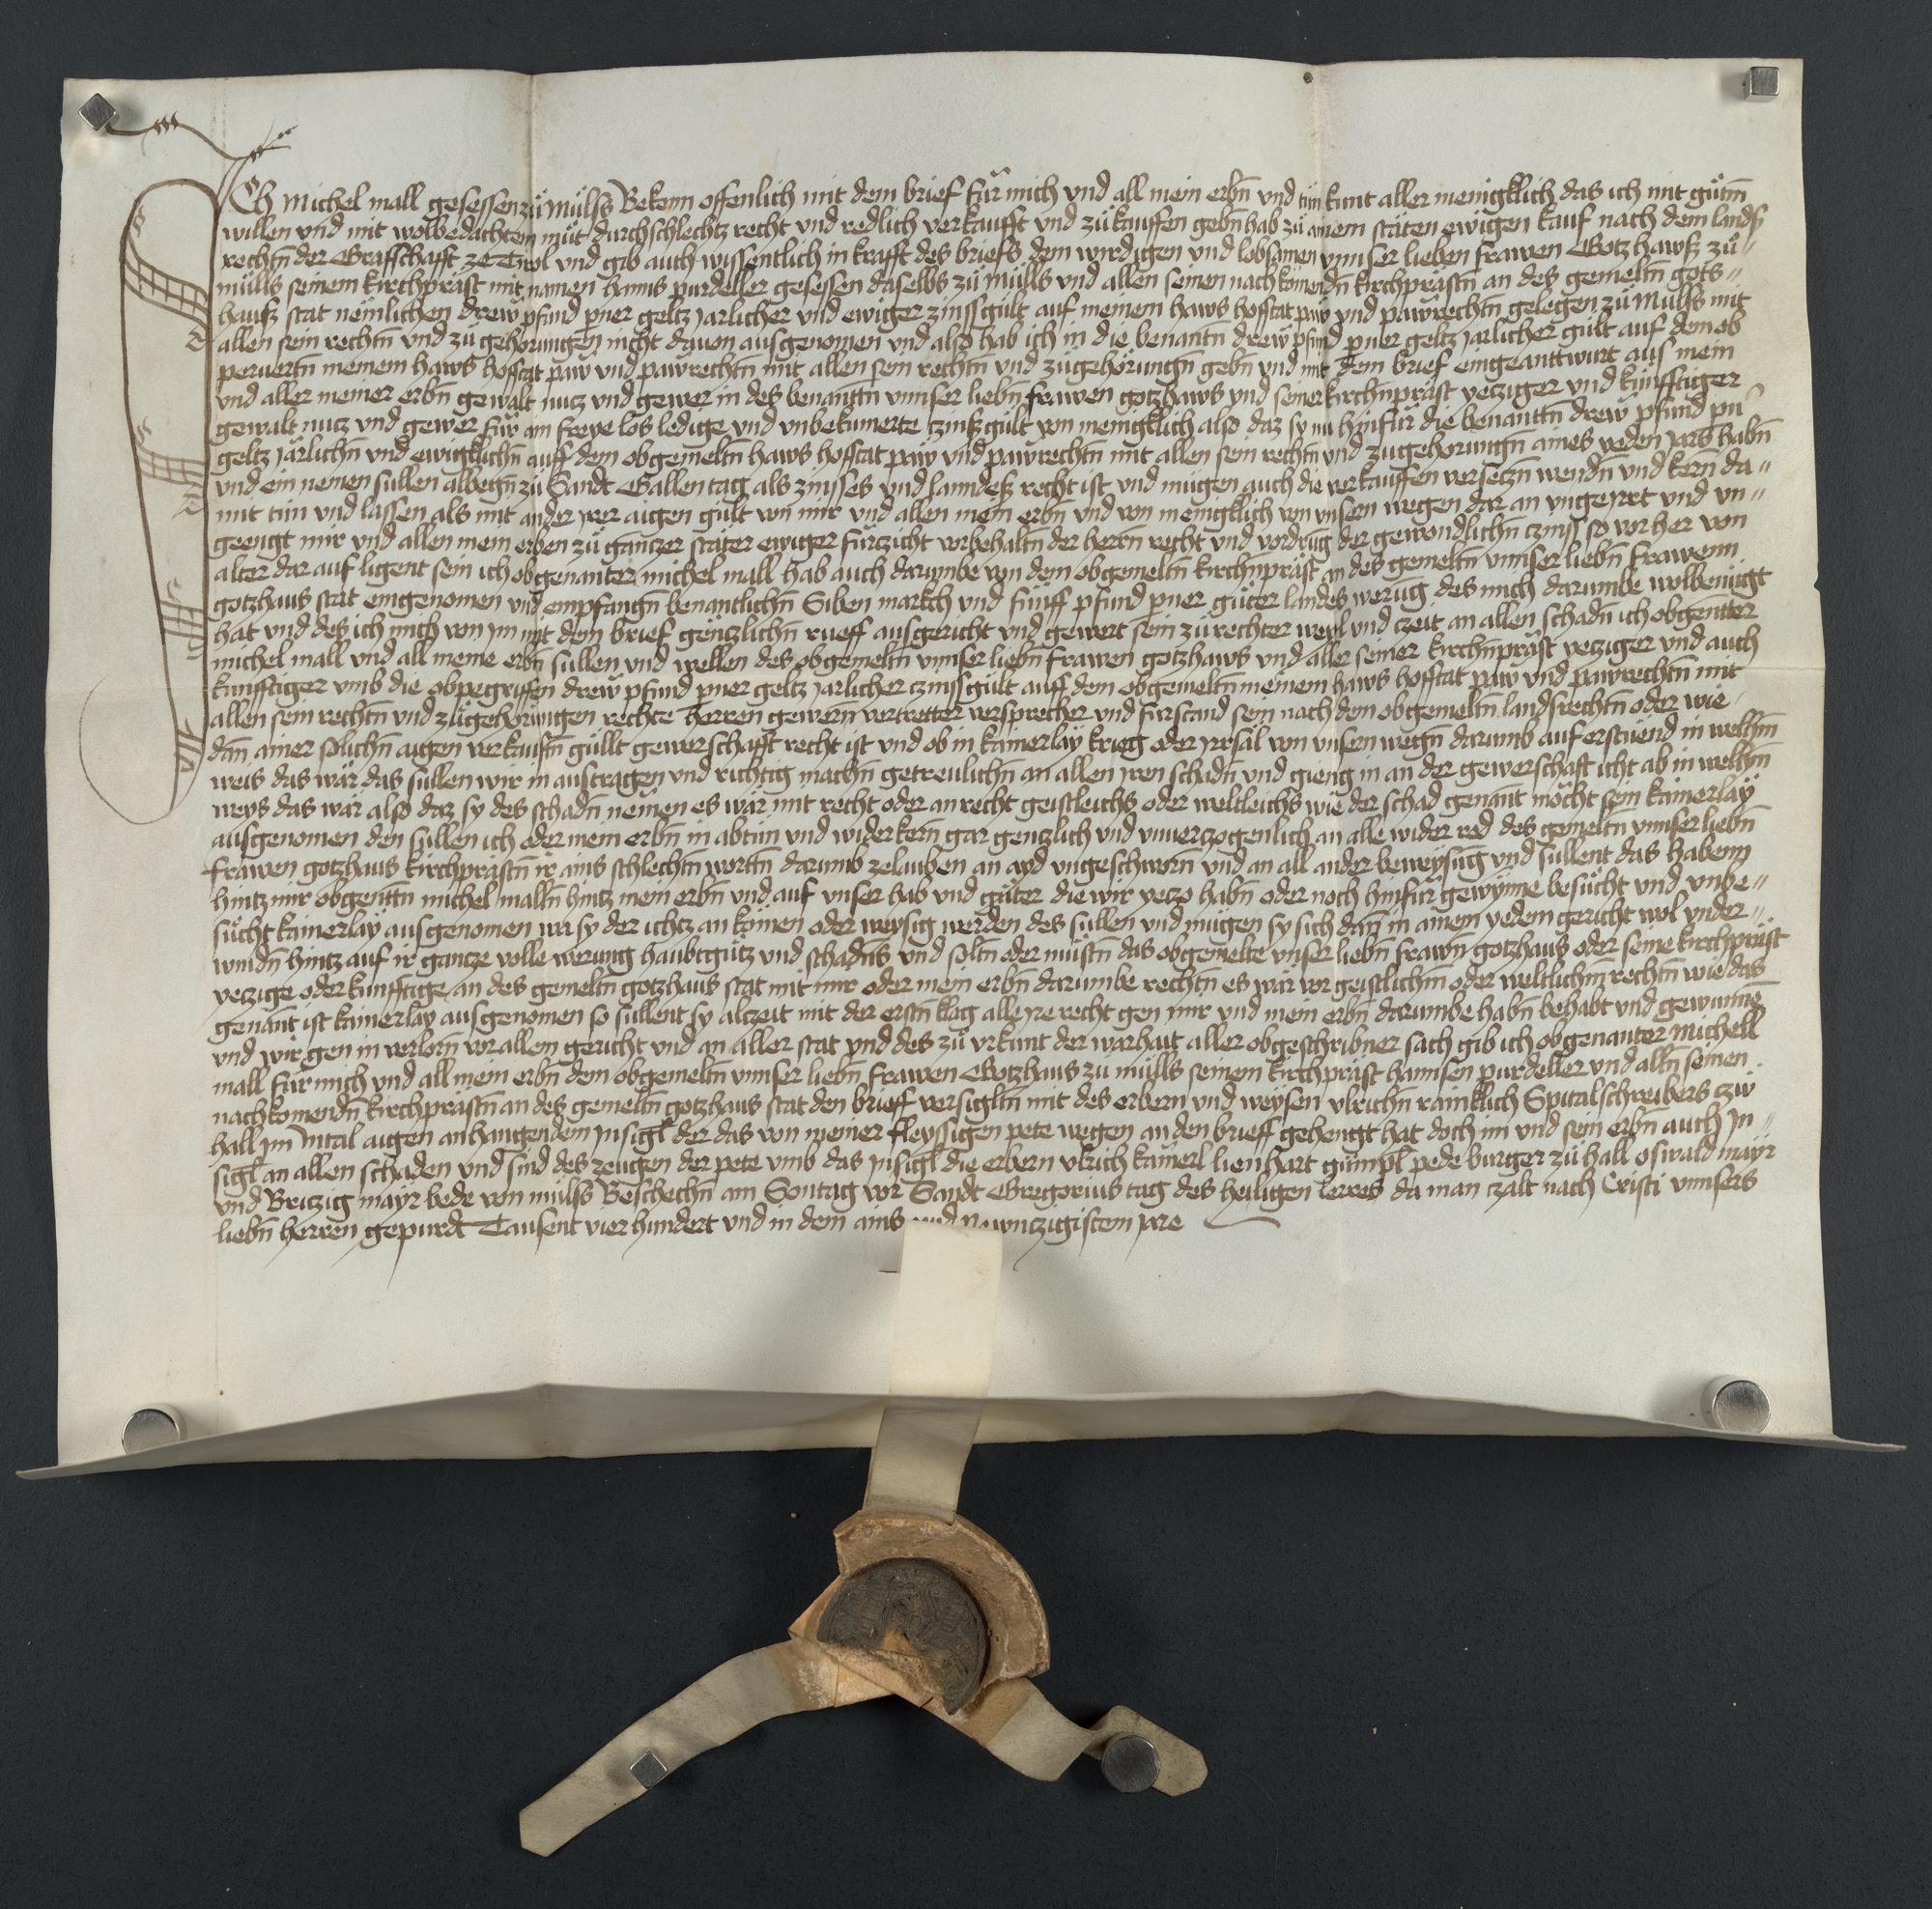 Ich Michel mall gesessen zů Mülls Bekenn offenlich mit dem brief für mich vnd all mein erbn̄ vnd tun kunt aller menigklich das ich mit gůtm̄
willen vnd mit wolbedachtem můt durchschlechtz recht vnd redlich verkaufft vnd zů kauffen gebn̄ hab zů ainem stäten ewigen kauf nach dem lands
rechtn̄ der Grafschafft ze Tirol vnd gib auch wissentlich in krafft des briefs dem wirdigen vnd lobsamen vnnser lieben frawen Gotzhawss zů
mülls seinem kirchpräst mit namen hanns purdeller gesessen daselbs zů Mülls vnd allen seinen nachkömendn̄ kirchprästn̄ an des gemeltn̄ gots
hauss stat nemlichen drew pfund pner geltz jarlicher vnd ewiger zinssgült auf meinem haws hofstat paw vnd pawrechtn̄ gelegen zů Mülls mit
allen sein rechtn̄ vnd zů gehörungen nicht dauon ausgenomen vnd also hab ich in die benantn̄ drew pfund pner geltz jarlicher gült auf dem ob
perüertn̄ meinem haws hofstat paw vnd pawrechtn̄ mit allen sein rechtn̄ vnd zůgehörungn̄ gebn̄ vnd mit dem brief eingeanttwurt aus mein
vnd aller meiner erbn̄ gewalt nutz vnd gewer in des benantn̄ vnnser liebn̄ frawen gotzhaws vnd seiner kirchn̄präst yetziger vnd künfftiger
gewalt nutz vnd gewer für ain freye los ledige vnd vnbekumerte zinss gült von menigklich also daz sy nu hinfür die benantn̄ drew pfund pn̄
geltz järlichn̄ vnd ewigklichn̄ auff dem obgemeltn̄ haws hofstat paw vnd pawrechtn̄ mit allen sein rechtn̄ vnd zugehorungn̄ aines yeden jars habn̄
vnd ein nemen sullen albegn̄ zů Sandt Gallen tag als zinsses vnd lanndess recht ist vnd mügen auch die verkauffen versetzn̄ wendn̄ vnd kern̄ da
mit tůn vnd lassen als mit ander jrer aigen gült von mir vnd allen mein erbn̄ vnd von menigklich von vnsern wegen dar an vngeyrret vnd vn
geengt mir vnd allen mein erben zů gantzer stäter ewiger fürtzicht vorbehaltn̄ der herrn̄ recht vnd vordrüg der gewondlichn̄ czinss so vor her von
alter dar auf ligent sein ich obgenanter michel mall hab auch darumbe von dem obgemeltn̄ kirchn̄präst an des gemeltn̄ vnnser liebn̄ frawenn
gotzhaus stat eingenomen vnd empfangn̄ benantlichn̄ Siben markch vnd fünff pfund pner gůter landes werüg des mich darumbe wolbenügt
hat vnd des ich mich von im mit dem brief gentzlichn̄ rueff ausgericht vnd gewert sein zů rechter weyl vnd czeit an allen schadn̄ ich obgenter
michel mall vnd all meine erbn̄ sullen vnd wellen des obgemeltn̄ vnnser liebn̄ frawen gotzhaws vnd aller seiner kirchn̄präst yetziger vnd auch
künfftiger vmb die obpegriffen drew pfund pner geltz jarlicher czinssgült auff dem obgemeltn̄ meinem haws hofstat paw vnd pawrechtn̄ mit
allen sein rechtn̄ vnd zůgehörungen rechte herren gewern̄ vertretter versprecher vnd fürstand sein nach dem obgemeltn̄ landsrechtn̄ oder wie
dan̄ ainer sölichn̄ aigen verkauftn̄ güllt gewerschafft recht ist vnd ob in kainerlay krieg oder jrrsal von vnsern wegn̄ darumb auf erstüend in welhm̄
weis das wär das sullen wir in austragen vnd richtig machn̄ getreulichn̄ an allen jren schadn̄ vnd gieng in an der gewerschaft icht ab in welhn̄
weys das wär also daz sy des schadn̄ nemen es wär mit recht oder an recht geistleichs oder weltleichs wie der schad genant möcht sein kainerlay
ausgenomen den sullen ich oder mein erbn̄ in abtůn vnd widerkern̄ gar gentzlich vnd vnuertzogenlich an alle wider red des gemeltn̄ vnnser liebn̄
frawen gotzhaus kirchprästn̄ ir ains schlechtn̄ wortn̄ darumb zelauben an ayd vngeschworn̄ vnd an all ander beweysüg vnd sullent das habenn
hintz mir obgentn̄ michel malln̄ hintz mein erbn̄ vnd auf vnser hab vnd gůter die wir yetzo habn̄ oder noch hinfür gewynne besücht vnd vnbe
sůcht kainerlay ausgenomen wa sy der ichtz an kömen oder weysig werden des sullen vnd mügen sy sich dan̄ in ainem yedem gericht wol vnder
windn̄ hintz auf ir gantze volle werung haubtgůtz vnd schadn̄s vnd soltn̄ oder müstn̄ das obgemelte vnser liebn̄ frawn̄ gotzhaus oder seine kirchpräst
yetzige oder künfftige an des gemeltn̄ gotzhaus stat mit mir oder mein erbn̄ darumbe rechtn̄ es wär vor geistlichm̄ oder weltlichm̄ rechtn̄ wie das
genant ist kainerlay ausgenomen so sullent sy alczeit mit der erstn̄ klag alle jre recht gen mir vnd mein erbn̄ darumbe habn̄ behabt vnd gewunnē
vnd wir gen in verlorn̄ vor allem gericht vnd an aller stat vnd des zů vrkunt der warhait aller obgeschribner sach gib ich obgenanter Michell
mall für mich vnd all mein erbn̄ dem obgemeltn̄ vnnser liebn̄ frawen Gotzhaus zu mülls seinem kirchpräst hannsen purdeller vnd alln̄ seinen
nachkomendn̄ kirchprästn̄ an des gemeltn̄ gotzhaus stat den brieff versigltn̄ mit des erbern vnd weysen vlrichn̄ rainklich Spitalschreibers zw
hall jm Inntal aigen anhangendem jnsigl der das von meiner fleyssigen pete wegen an den brieff gehengt hat doch im vnd sein erbn̄ auch jn
sigl an allen schaden vnd sind des zeugen der pete vmb das jnsigl die erbern vlrich kämerl lienhart gümpl pede burger zů hall oswald mayr
vnd Britzig mayr bede von mülls Beschechn̄ am Sontag vor Sandt Gregorius tag des heiligen lerres da man czalt nach Cristi vnnsers
liebn̄ herren gepurdt Tausent vierhundert vnd in dem ains vnd Nawntzigistem jare